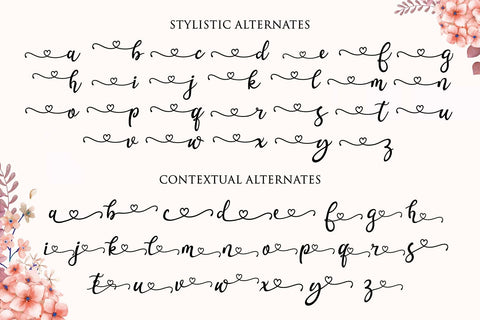 STYLISTIC ALTERNATES
a b c d e f g
h i j k l m n
o p q r s t u
v w x y z
CONTEXTUAL ALTERNATES
a b c d e f g h
i j k l m n o p q r s
t u v w x y z